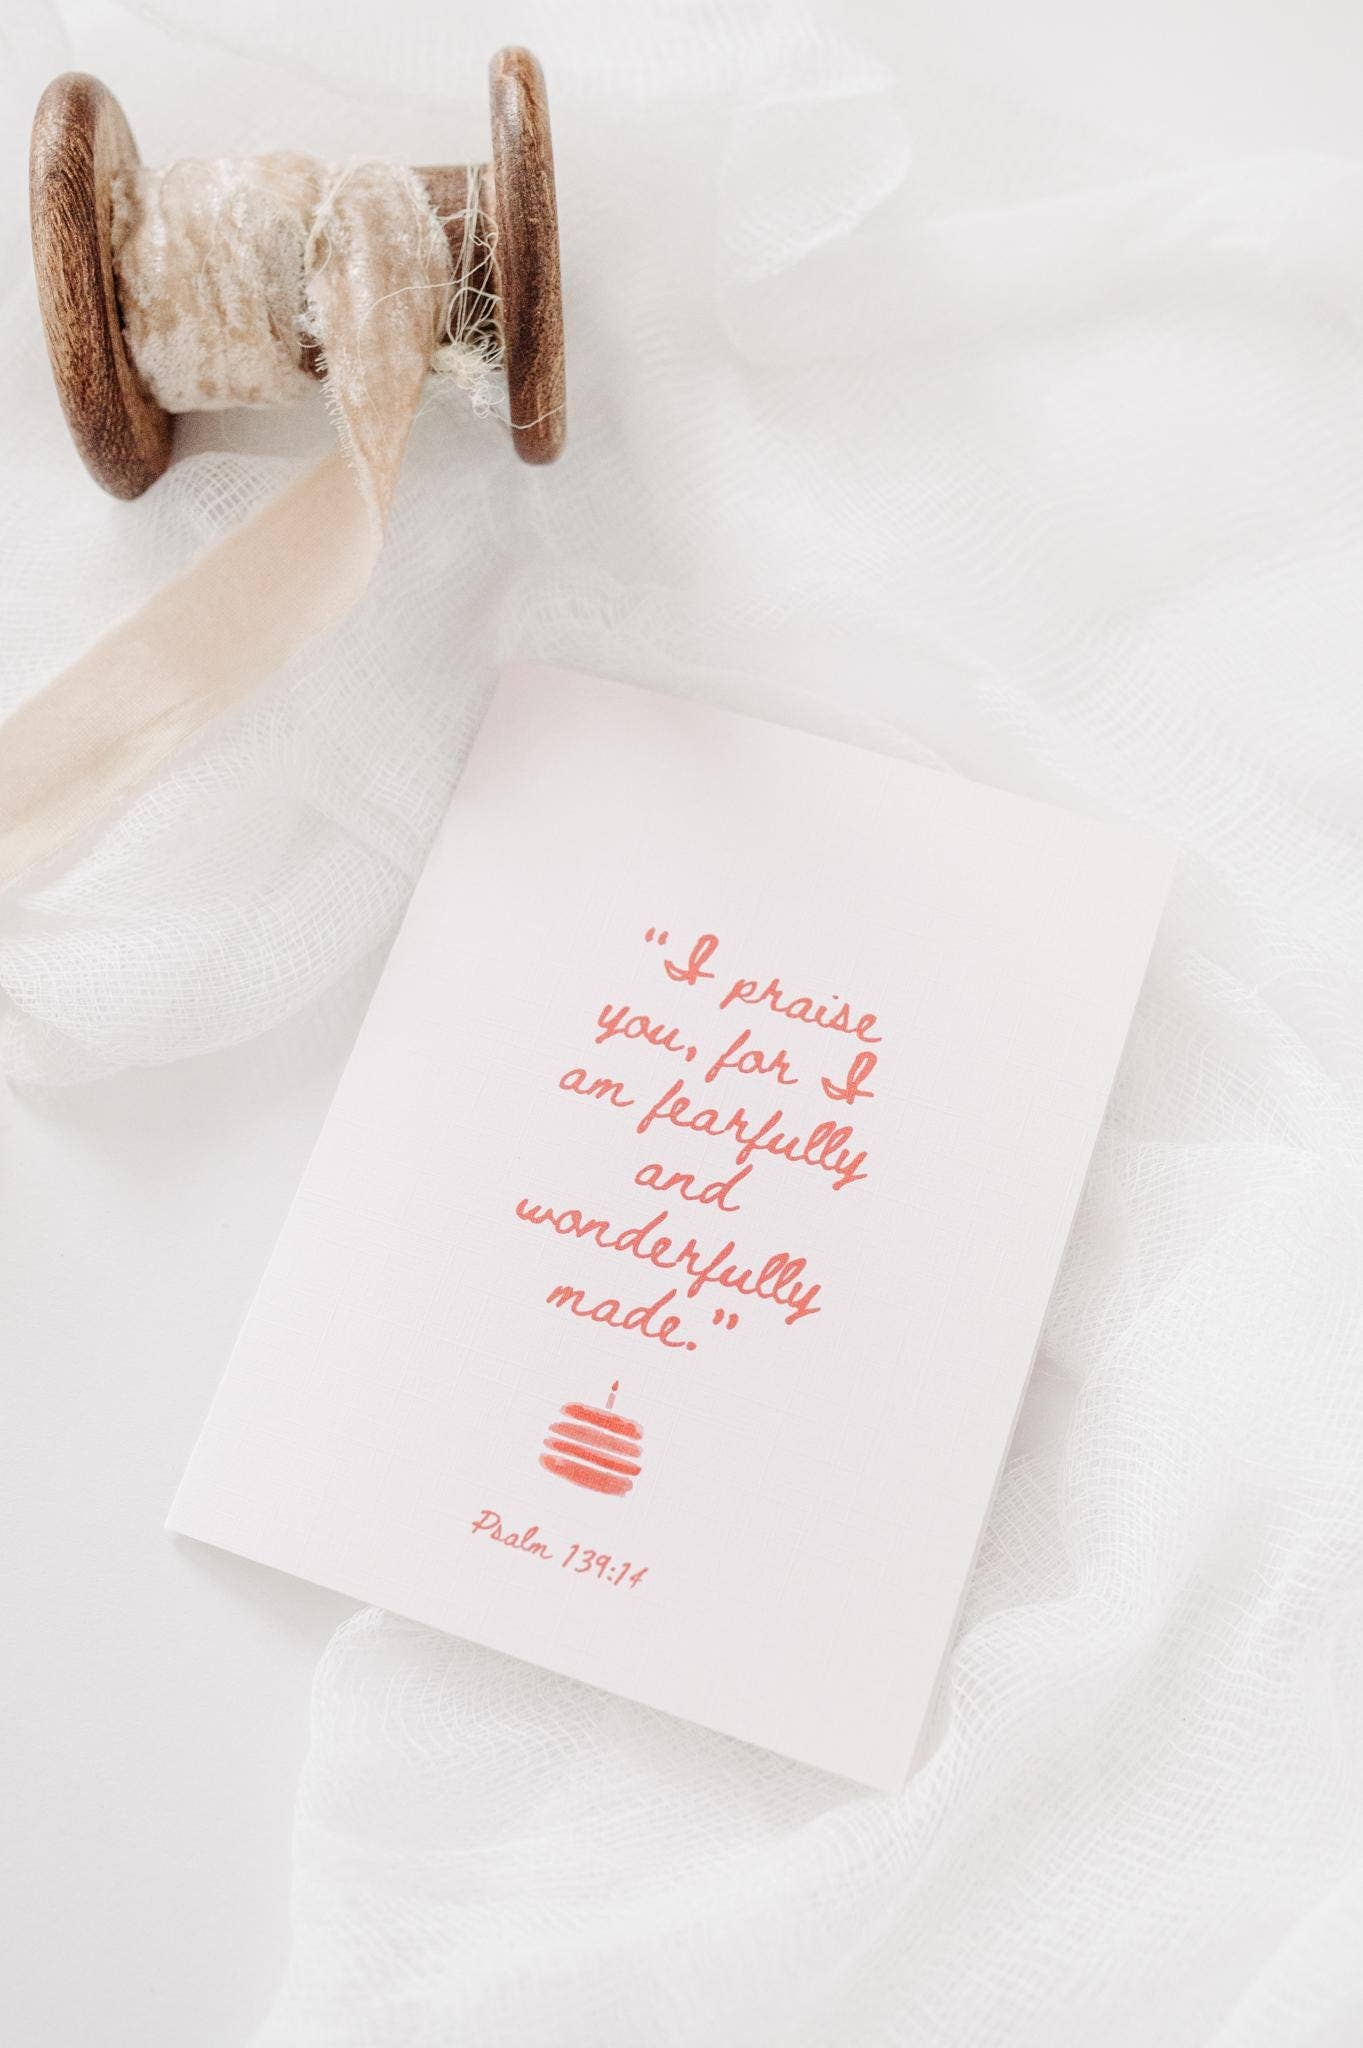 “I praise
you, for I
am fearfully
and
wonderfully
made.”
Psalm 139:14